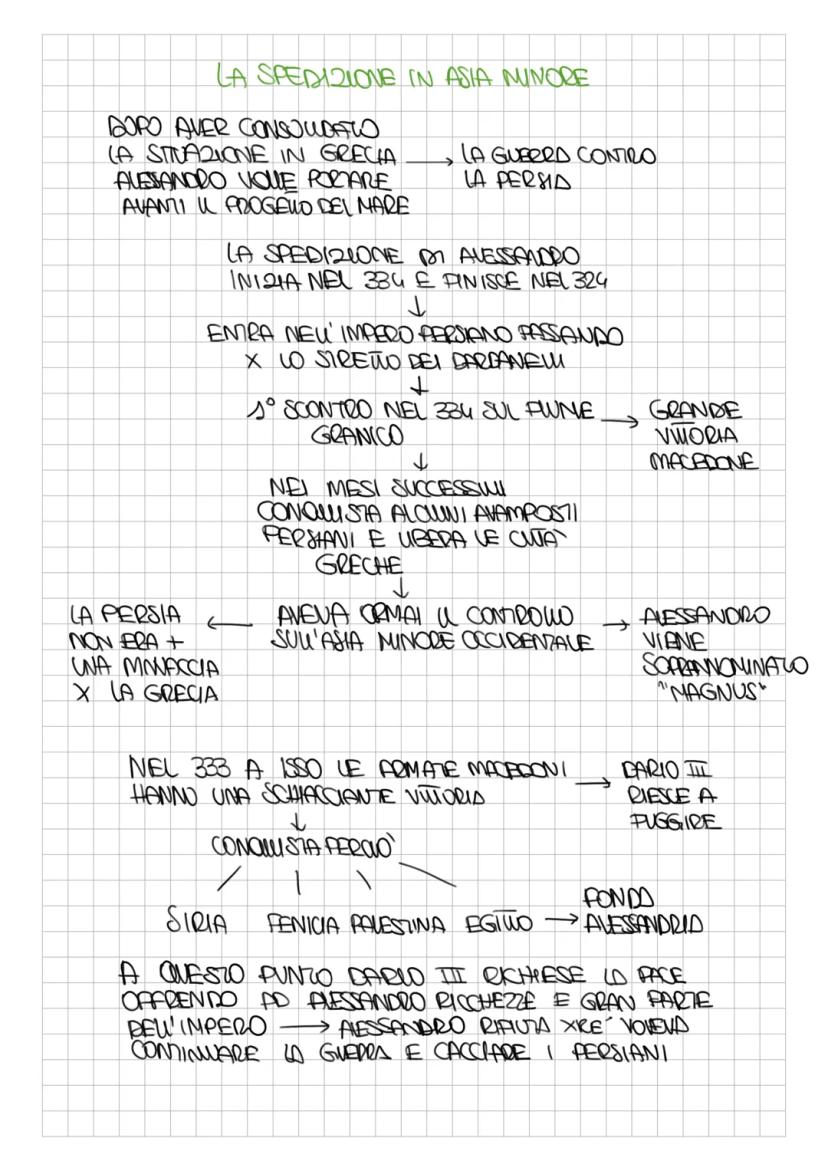 LA SPEDIZIONE IN ASIA MINORE
DOPO AVER CONSOLIDATO
LA SITUAZIONE IN GRECIA → LA GUERRA CONTRO
ALESSANDRO VOLLE PORTARE LA PERSIA
AVANTI IL PROGETTO DEL MARE
LA SPEDIZIONE DI ALESSANDRO
INIZIA NEL 334 E FINISCE NEL 324
↓
ENTRA NELL'IMPERO PERSIANO PASSANDO
X LO STRETTO DEI DARDANELLI
↓
1° SCONTRO NEL 334 SUL FIUME → GRANDE
GRANICO VITTORIA
↓ MACEDONE
NEI MESI SUCCESSIVI
CONQUISTA ALCUNI AVAMPOSTI
PERSIANI E LIBERA LE CITTÀ
GRECHE
↓
LA PERSIA ← AVEVA ORMAI IL CONTROLLO → ALESSANDRO
NON ERA + SULL'ASIA MINORE OCCIDENTALE VIENE
UNA MINACCIA SOPRANNOMINATO
X LA GRECIA "MAGNUS"
NEL 333 A ISSO LE ARMATE MACEDONI → DARIO III
HANNO UNA SCHIACCIANTE VITTORIA RIESCE A
↓ FUGGIRE
CONQUISTA PERCIÒ
FONDA
SIRIA FENICIA PALESTINA EGITTO → ALESSANDRIA
A QUESTO PUNTO DARIO III RICHIESE LA PACE
OFFRENDO AD ALESSANDRO RICCHEZZE E GRAN PARTE
DELL'IMPERO → ALESSANDRO RIFIUTA XRÉ VOLEVA
CONTINUARE LA GUERRA E CACCIARE I PERSIANI